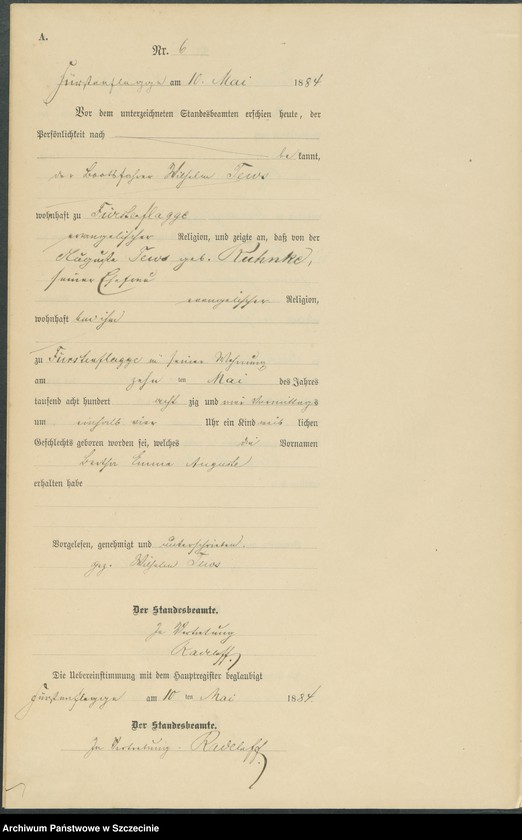 A.
Nr. 6
Fürstenflagge am 10. Mai 1884
Vor dem unterzeichneten Standesbeamten erschien heute, der
Persönlichkeit nach
be kannt,
der Wilhelm Tews
wohnhaft zu Fürstenflagge
evangelischer Religion, und zeigte an, daß von der
Auguste Tews geb. Kuhnke,
seiner Ehefrau
evangelischer Religion,
wohnhaft bei ihm
zu Fürstenflagge in seiner Wohnung
am zehn ten Mai des Jahres
tausend acht hundert acht zig und vier Vormittags
um einhalb vier Uhr ein Kind weib lichen
Geschlechts geboren worden sei, welches die Vornamen
Bertha Emma Auguste
erhalten habe
Vorgelesen, genehmigt und unterschrieben.
gez. Wilhelm Tews
Der Standesbeamte.
In Vertretung
Radloff.
Die Uebereinstimmung mit dem Hauptregister beglaubigt
Fürstenflagge am 10 ten Mai 1884.
Der Standesbeamte.
In Vertretung. Radloff
Archiwum Państwowe w Szczecinie